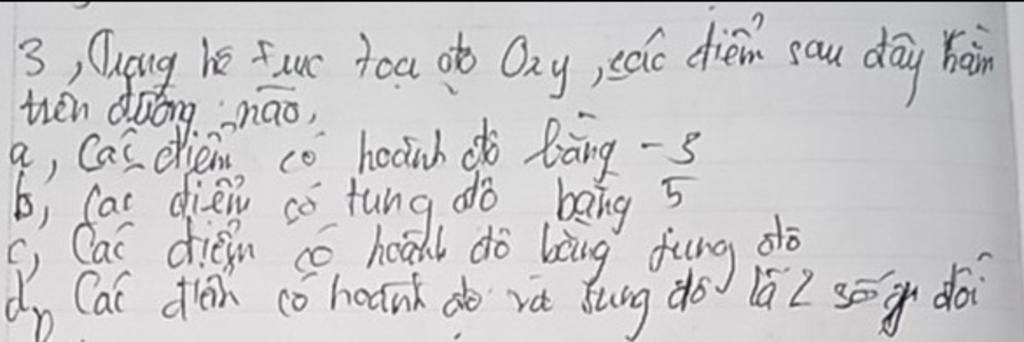 3, Trong hệ trục tọa độ Oxy, các điểm sau đây nằm
trên đường nào,
a, Các điểm có hoành độ bằng -3
b, Các điểm có tung độ bằng 5
c, Các điểm có hoành độ bằng tung độ
d, Các điểm có hoành độ và tung độ là 2 số đối